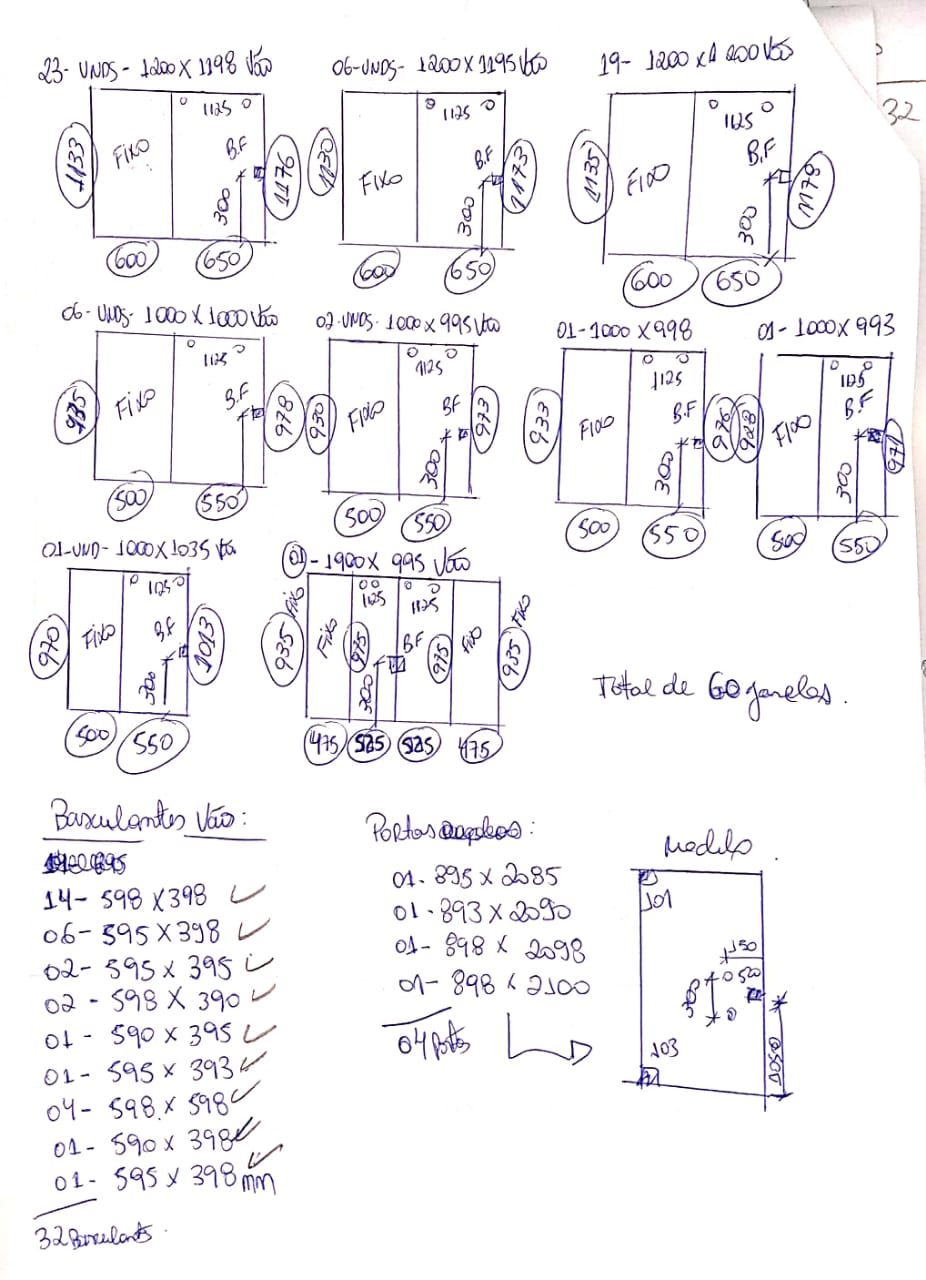 23- UNDS - 1200 X 1198 Vão
1125
FIXO
B.F
1133
1176
300
600
650
06-UNDS- 1200 X 1195 Vão
1125
FIXO
B.F
1130
1173
300
600
650
19- 1200 X 1200 Vão
1125
FIXO
B.F
1135
1178
300
600
650
32
06- UNDS- 1000 X 1000 Vão
1125
FIXO
B.F
935
978
300
500
550
02-UNDS- 1000 X 995 Vão
1125
FIXO
BF
930
973
300
500
550
01-1000 X 998
1125
FIXO
B.F
933
976
300
500
550
01- 1000 X 993
1125
FIXO
B.F
928
971
300
500
550
01-UND- 1000 X 1035 Vão
1125
FIXO
BF
970
1013
300
500
550
01 - 1900 X 995 Vão
Fixo
1125
1125
Fixo
935
Fixo
975
BF
975
Fixo
935
300
475
525
525
475
Total de 60 janelas.
Basculantes Vão:
14- 598 X 398
06- 595 X 398
02- 595 X 395
02 - 598 X 390
01- 590 X 395
01- 595 X 393
04- 598 X 598
01- 590 X 398
01- 595 X 398 mm
32 Basculants.
Portas
01- 895 X 2085
01- 893 X 2090
01- 898 X 2098
01- 898 X 2100
04 Portas
Modelo.
101
150
520
300
103
1050